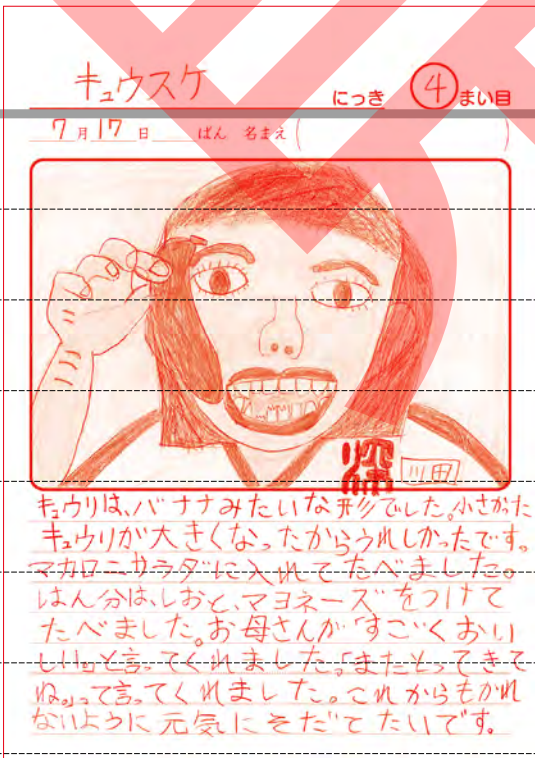 キュウスケ
にっき ④まい目
7月17日 ばん 名まえ( )
深
川田
キュウリは、バナナみたいな形でした。小さかった
キュウリが大きくなったからうれしかったです。
マカロニサラダに入れてたべました。
はん分は、しおと、マヨネーズをつけて
たべました。お母さんが「すごくおい
しい」と言ってくれました。「またとってきて
ね。」って言ってくれました。これからもかれ
ないように元気にそだてたいです。